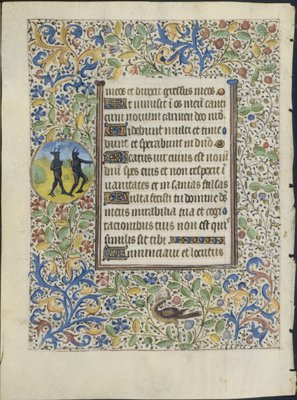 meos et direxit gressus meos
Et immisit ī os meū canti
cum novum carmen deo nrō
Videbunt multi et time
bunt et sperabunt in dnō
Beatus vir cuius est nomē
dnī spes eius et non respexit ī
vanitates et insanias falsas
Multa fecisti tu domine de
meus mirabilia tua et cogi
tacionibus tuis non est qui
similis sit tibi
Annunciavi et locutus